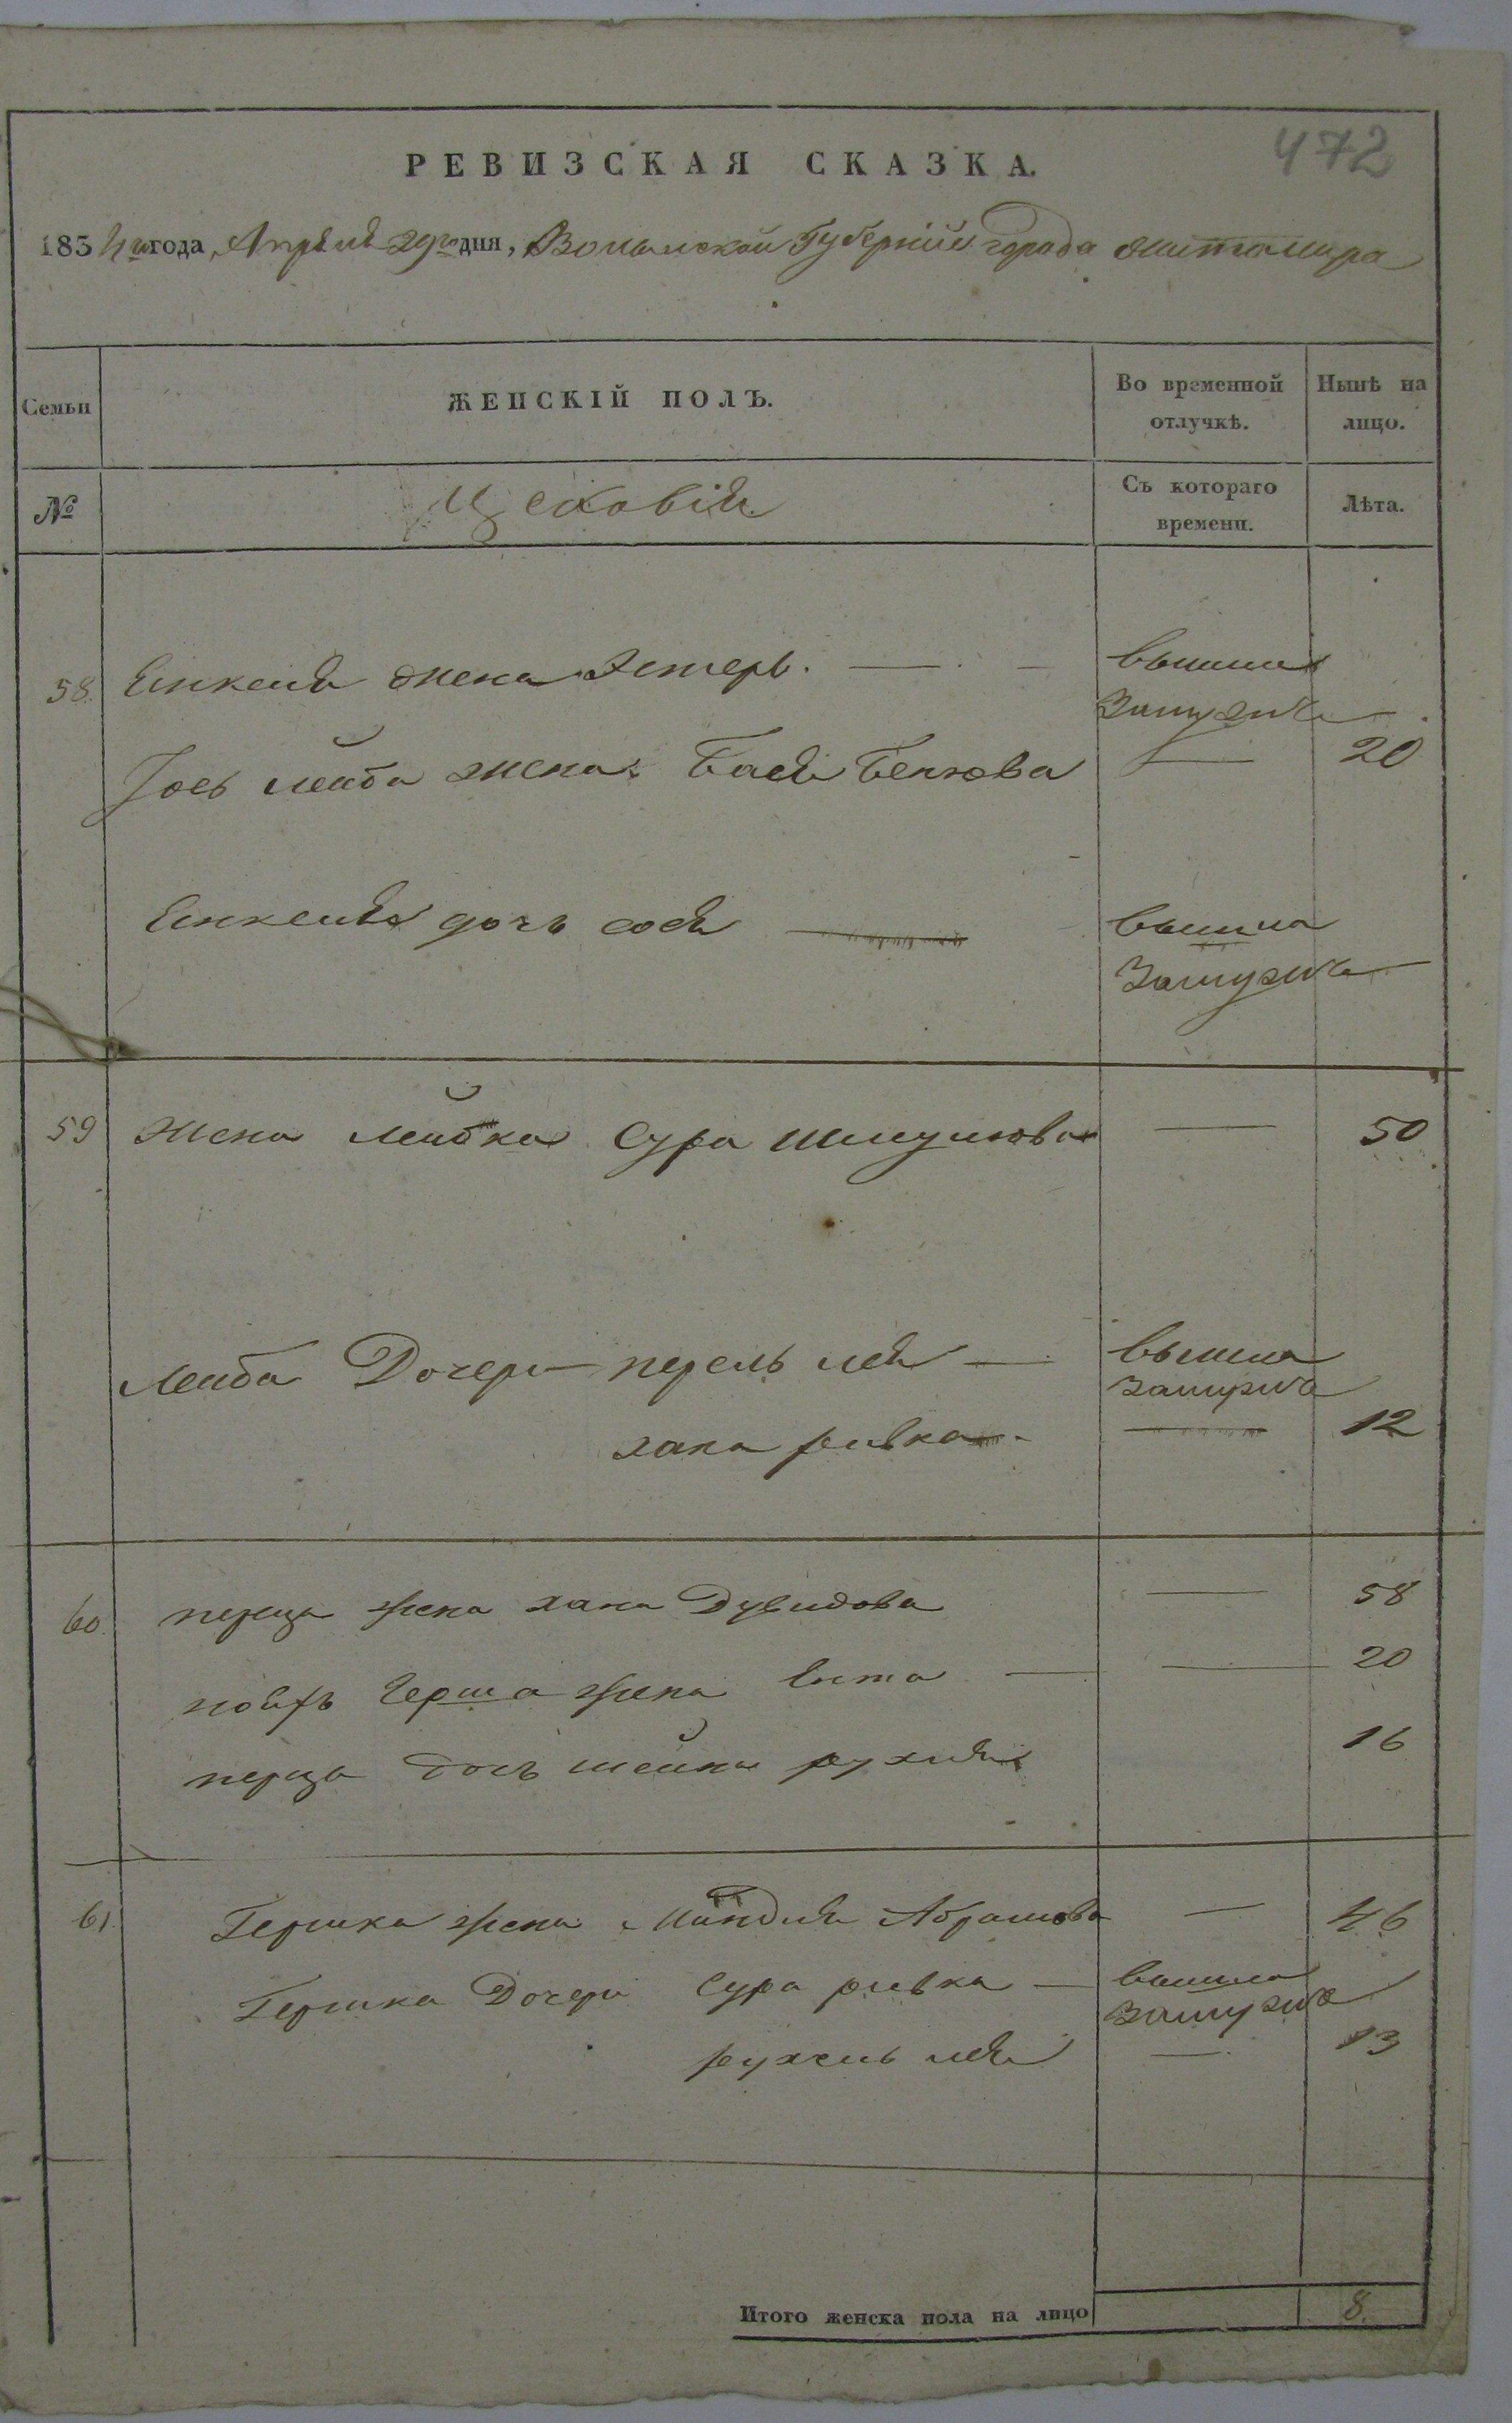 472
РЕВИЗСКАЯ СКАЗКА.
1834го года, Апреля 29го дня, Волынской Губерніи города Житомира
Семьи
ЖЕНСКІЙ ПОЛЪ.
Во временной отлучкѣ.
Нынѣ на лицо.
№
Цеховіи
Съ котораго времени.
Лѣта.
58. Янкеля жена Эстерь. — вышла замужъ
Іось лейба жена Бася Бенюова — 20
Янкеля дочь сося — вышла замужъ
59 Жена лейбка Сура Шмулюова — 50
Лейба Дочери перель лея — вышла замужъ
хана ривка — 12
60. перца жена хана Дувидова — 58
герша жена вита — 20
перца дочь шейна рухля 16
61. Гершка жена Миндля Абрамова — 46
Гершка Дочери Сура ривка — вышла замужъ
рухель лея — 13
Итого женска пола на лицо 8.